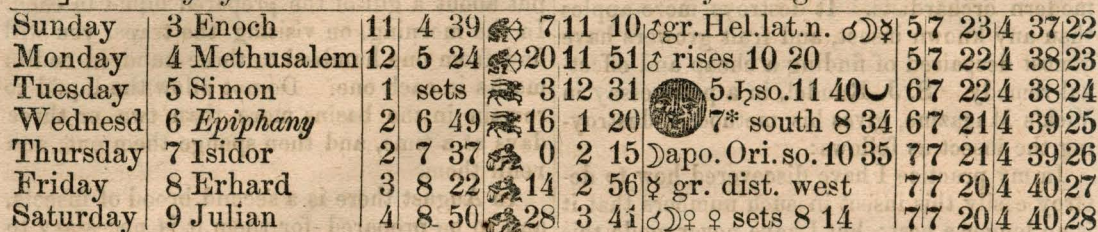 Sunday 3 Enoch 11 4 39 7 11 10 ♂gr.Hel.lat.n. ☌☽☿ 5 7 23 4 37 22
Monday 4 Methusalem 12 5 24 20 11 51 ♂ rises 10 20 5 7 22 4 38 23
Tuesday 5 Simon 1 sets 3 12 31 5.♄so.11 40 6 7 22 4 38 24
Wednesd 6 Epiphany 2 6 49 16 1 20 7* south 8 34 6 7 21 4 39 25
Thursday 7 Isidor 2 7 37 0 2 15 ☽apo. Ori. so. 10 35 7 7 21 4 39 26
Friday 8 Erhard 3 8 22 14 2 56 ☿ gr. dist. west 7 7 20 4 40 27
Saturday 9 Julian 4 8 50 28 3 41 ☌☽♀ ♀ sets 8 14 7 7 20 4 40 28